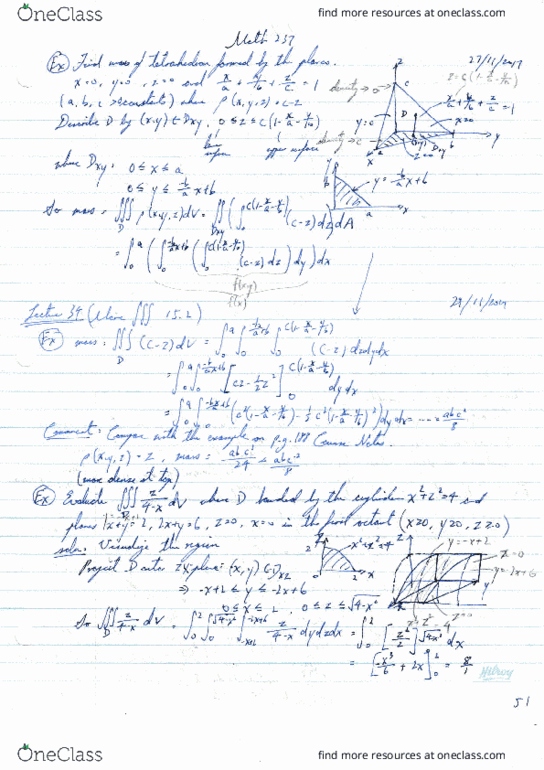 OneClass
find more resources at oneclass.com
Math 237
27/11/2017
Ex Find mass of tetrahedron formed by the planes
x=0, y=0, z=0 and x/a + y/b + z/c = 1
(a, b, c constants) where ρ(x,y,z) = c-z
Describe D by (x,y) ∈ Dxy, 0 ≤ z ≤ c(1-x/a-y/b)
upper surface
density → 0
x/a + y/b + z/c = 1
where Dxy: 0 ≤ x ≤ a
0 ≤ y ≤ -b/a x+b
y = -b/a x+b
So mass = ∭ ρ(x,y,z)dV = ∬ (∫ (c-z)dz)dA
= ∫ (∫ (∫ (c-z)dz) dy) dx
f(x,y)
f(x)
Lecture 34 (More ∭ 15.2)
Ex mass = ∭ (c-z)dV = ∫ ∫ ∫ (c-z) dzdydx
= ∫ ∫ [cz - 1/2 z²] dy dx
= ∫ ∫ (c²(1-x/a-y/b) - 1/2 c²(1-x/a-y/b)²) dy dx = ... = abc²/8
Comment: Compare with the example on pg. Course Notes.
ρ(x,y,z) = z, mass = abc²/24 < abc²/8
(more dense at top)
Ex Evaluate ∭ z/(4-x) dV where D bounded by the cylinder x²+z²=4 and
planes x+y=2, 2x+y=6, z=0, x=0 in the first octant (x≥0, y≥0, z≥0)
soln: Visualize the region
x²+z²=4
y=-x+2
x=0
y=-2x+6
Project D onto zx plane: (x,y) ∈ Dxz
⇒ -x+2 ≤ y ≤ -2x+6
0 ≤ x ≤ 2, 0 ≤ z ≤ √4-x²
So ∭ z/(4-x) dV = ∫ ∫ ∫ z/(4-x) dydzdx = ∫ [z²/2] dx
= [-x³/6 + 2x] = 8/
51
OneClass
find more resources at oneclass.com